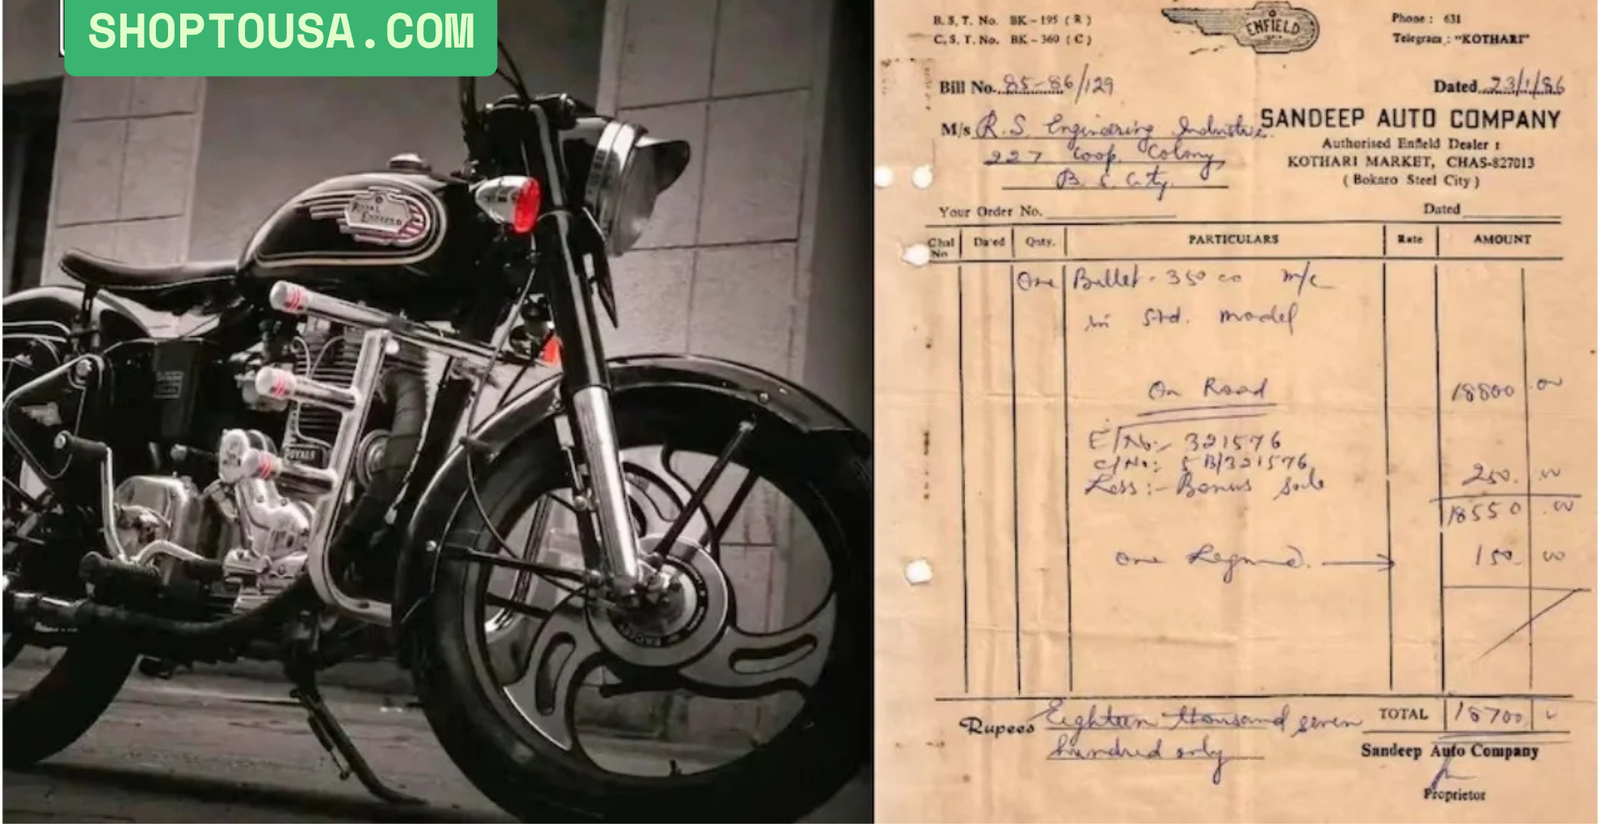 SHOPTOUSA.COM
ROYAL
ENFIELD
B. S. T. No. BK-195 ( R )
C. S. T. No. BK-360 ( C )
ENFIELD
Phone : 631
Telegram : "KOTHARI"
Bill No. 85-86/129
Dated 23/1/86
M/s R.S. Enginering Industrie.
227 Coop. Colony,
B. S. City.
SANDEEP AUTO COMPANY
Authorised Enfield Dealer :
KOTHARI MARKET, CHAS-827013
( Bokaro Steel City )
Your Order No.
Dated
Chal No Dated Qnty. PARTICULARS Rate AMOUNT
One Bullet - 350 cc m/c
in Std. model
On Road 18800 .00
E/No:- 321576
C/No: 5B/321576
Less:- Bonus 250. 00
18550 .00
one 150. 00
Rupees Eighteen thousand seven
hundred only
TOTAL 18700
Sandeep Auto Company
Proprietor